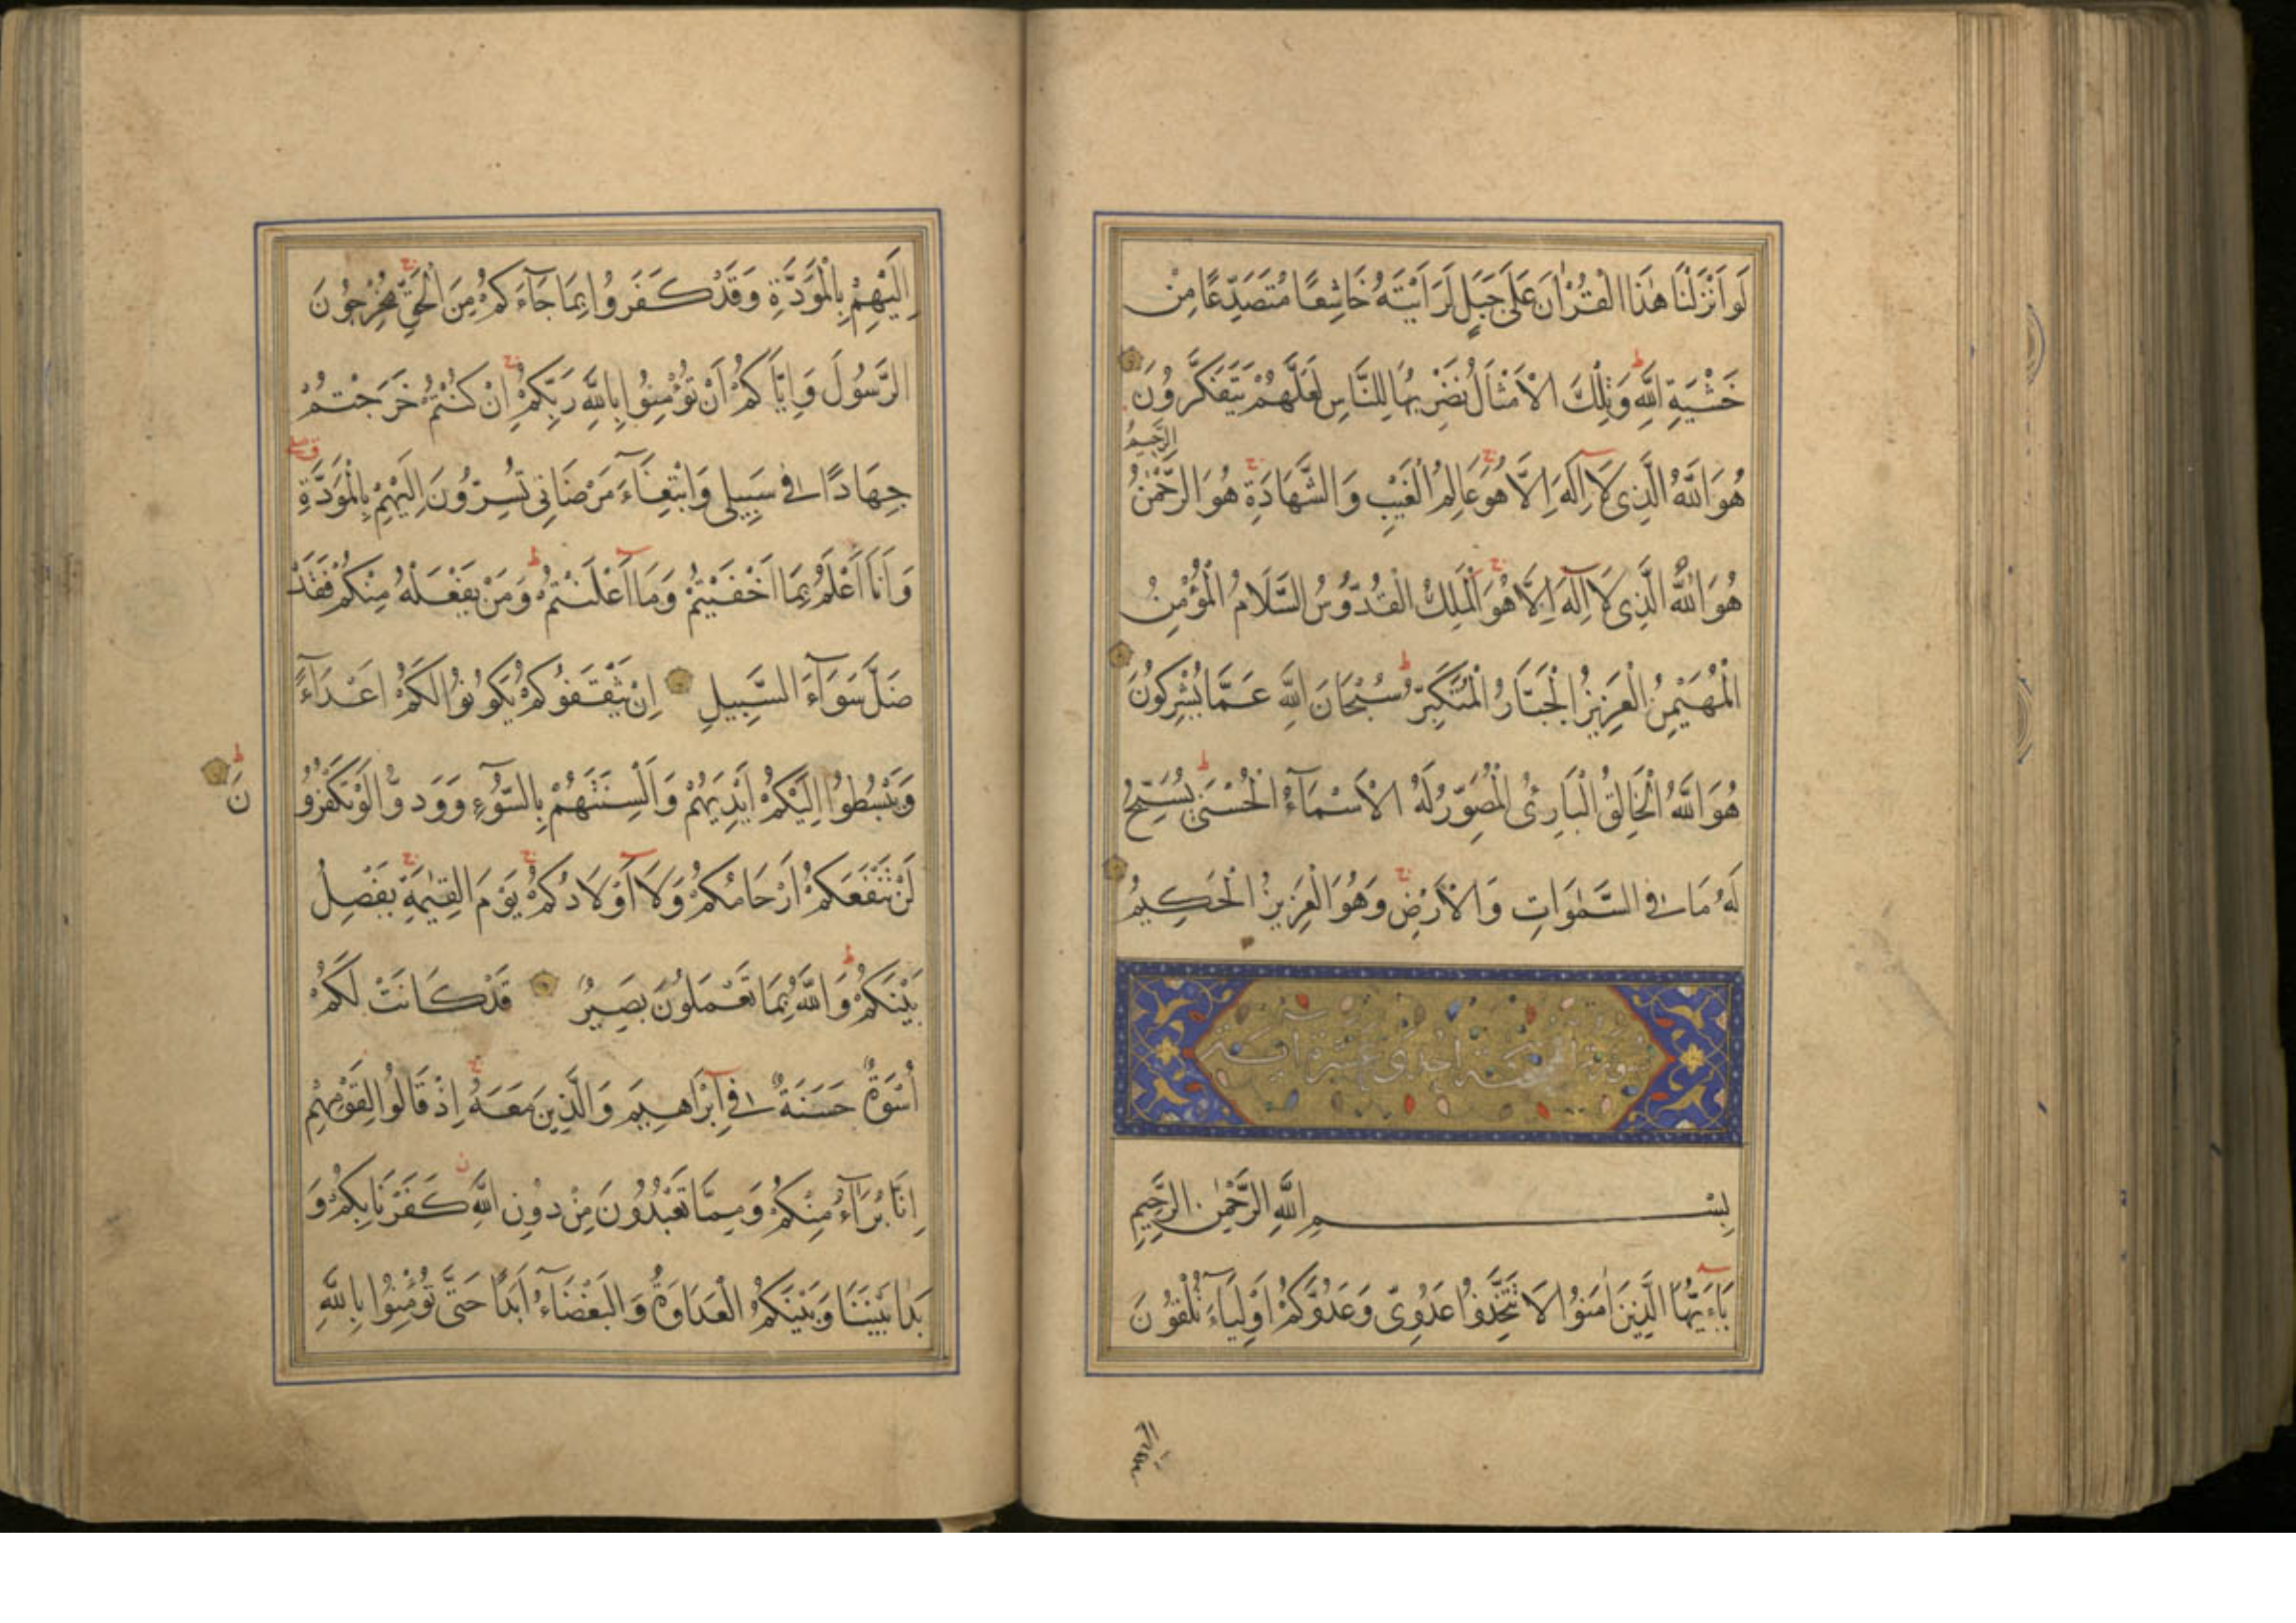 لَوْ اَنْزَلْنَا هٰذَا الْقُرْاٰنَ عَلٰى جَبَلٍ لَرَاَيْتَهُ خَاشِعًا مُتَصَدِّعًا مِنْ
خَشْيَةِ اللّٰهِ ط وَتِلْكَ الْاَمْثَالُ نَضْرِبُهَا لِلنَّاسِ لَعَلَّهُمْ يَتَفَكَّرُونَ
هُوَ اللّٰهُ الَّذِى لَآ اِلٰهَ اِلَّا هُوَ ج عَالِمُ الْغَيْبِ وَالشَّهَادَةِ ج هُوَ الرَّحْمٰنُ الرَّحِيمُ
هُوَ اللّٰهُ الَّذِى لَآ اِلٰهَ اِلَّا هُوَ ج اَلْمَلِكُ الْقُدُّوسُ السَّلَامُ الْمُؤْمِنُ
الْمُهَيْمِنُ الْعَزِيزُ الْجَبَّارُ الْمُتَكَبِّرُ ط سُبْحَانَ اللّٰهِ عَمَّا يُشْرِكُونَ
هُوَ اللّٰهُ الْخَالِقُ الْبَارِئُ الْمُصَوِّرُ لَهُ الْاَسْمَآءُ الْحُسْنٰى ط يُسَبِّحُ
لَهُ مَا فِى السَّمٰوَاتِ وَالْاَرْضِ ج وَهُوَ الْعَزِيزُ الْحَكِيمُ
سورة الممتحنة احدى عشرة اية
بِسْمِ اللّٰهِ الرَّحْمٰنِ الرَّحِيمِ
يَآءَيُّهَا الَّذِينَ اٰمَنُوا لَا تَتَّخِذُوا عَدُوِّى وَعَدُوَّكُمْ اَوْلِيَآءَ تُلْقُونَ
اِلَيْهِمْ بِالْمَوَدَّةِ وَقَدْ كَفَرُوا بِمَا جَآءَكُمْ مِنَ الْحَقِّ ج يُخْرِجُونَ
الرَّسُولَ وَاِيَّاكُمْ اَنْ تُؤْمِنُوا بِاللّٰهِ رَبِّكُمْ ج اِنْ كُنْتُمْ خَرَجْتُمْ
جِهَادًا فِى سَبِيلِى وَابْتِغَآءَ مَرْضَاتِى تُسِرُّونَ اِلَيْهِمْ بِالْمَوَدَّةِ
وَاَنَا اَعْلَمُ بِمَا اَخْفَيْتُمْ وَمَآ اَعْلَنْتُمْ ط وَمَنْ يَفْعَلْهُ مِنْكُمْ فَقَدْ
ضَلَّ سَوَآءَ السَّبِيلِ اِنْ يَثْقَفُوكُمْ يَكُونُوا لَكُمْ اَعْدَآءً
وَيَبْسُطُوا اِلَيْكُمْ اَيْدِيَهُمْ وَاَلْسِنَتَهُمْ بِالسُّوٓءِ وَوَدُّوا لَوْ تَكْفُرُونَ ط
لَنْ تَنْفَعَكُمْ اَرْحَامُكُمْ وَلَآ اَوْلَادُكُمْ ج يَوْمَ الْقِيٰمَةِ ج يَفْصِلُ
بَيْنَكُمْ ط وَاللّٰهُ بِمَا تَعْمَلُونَ بَصِيرٌ قَدْ كَانَتْ لَكُمْ
اُسْوَةٌ حَسَنَةٌ فِىٓ اِبْرَاهِيمَ وَالَّذِينَ مَعَهُ ج اِذْ قَالُوا لِقَوْمِهِمْ
اِنَّا بُرَآءُ مِنْكُمْ وَمِمَّا تَعْبُدُونَ مِنْ دُونِ اللّٰهِ كَفَرْنَا بِكُمْ وَ
بَدَا بَيْنَنَا وَبَيْنَكُمُ الْعَدَاوَةُ وَالْبَغْضَآءُ اَبَدًا حَتّٰى تُؤْمِنُوا بِاللّٰهِ